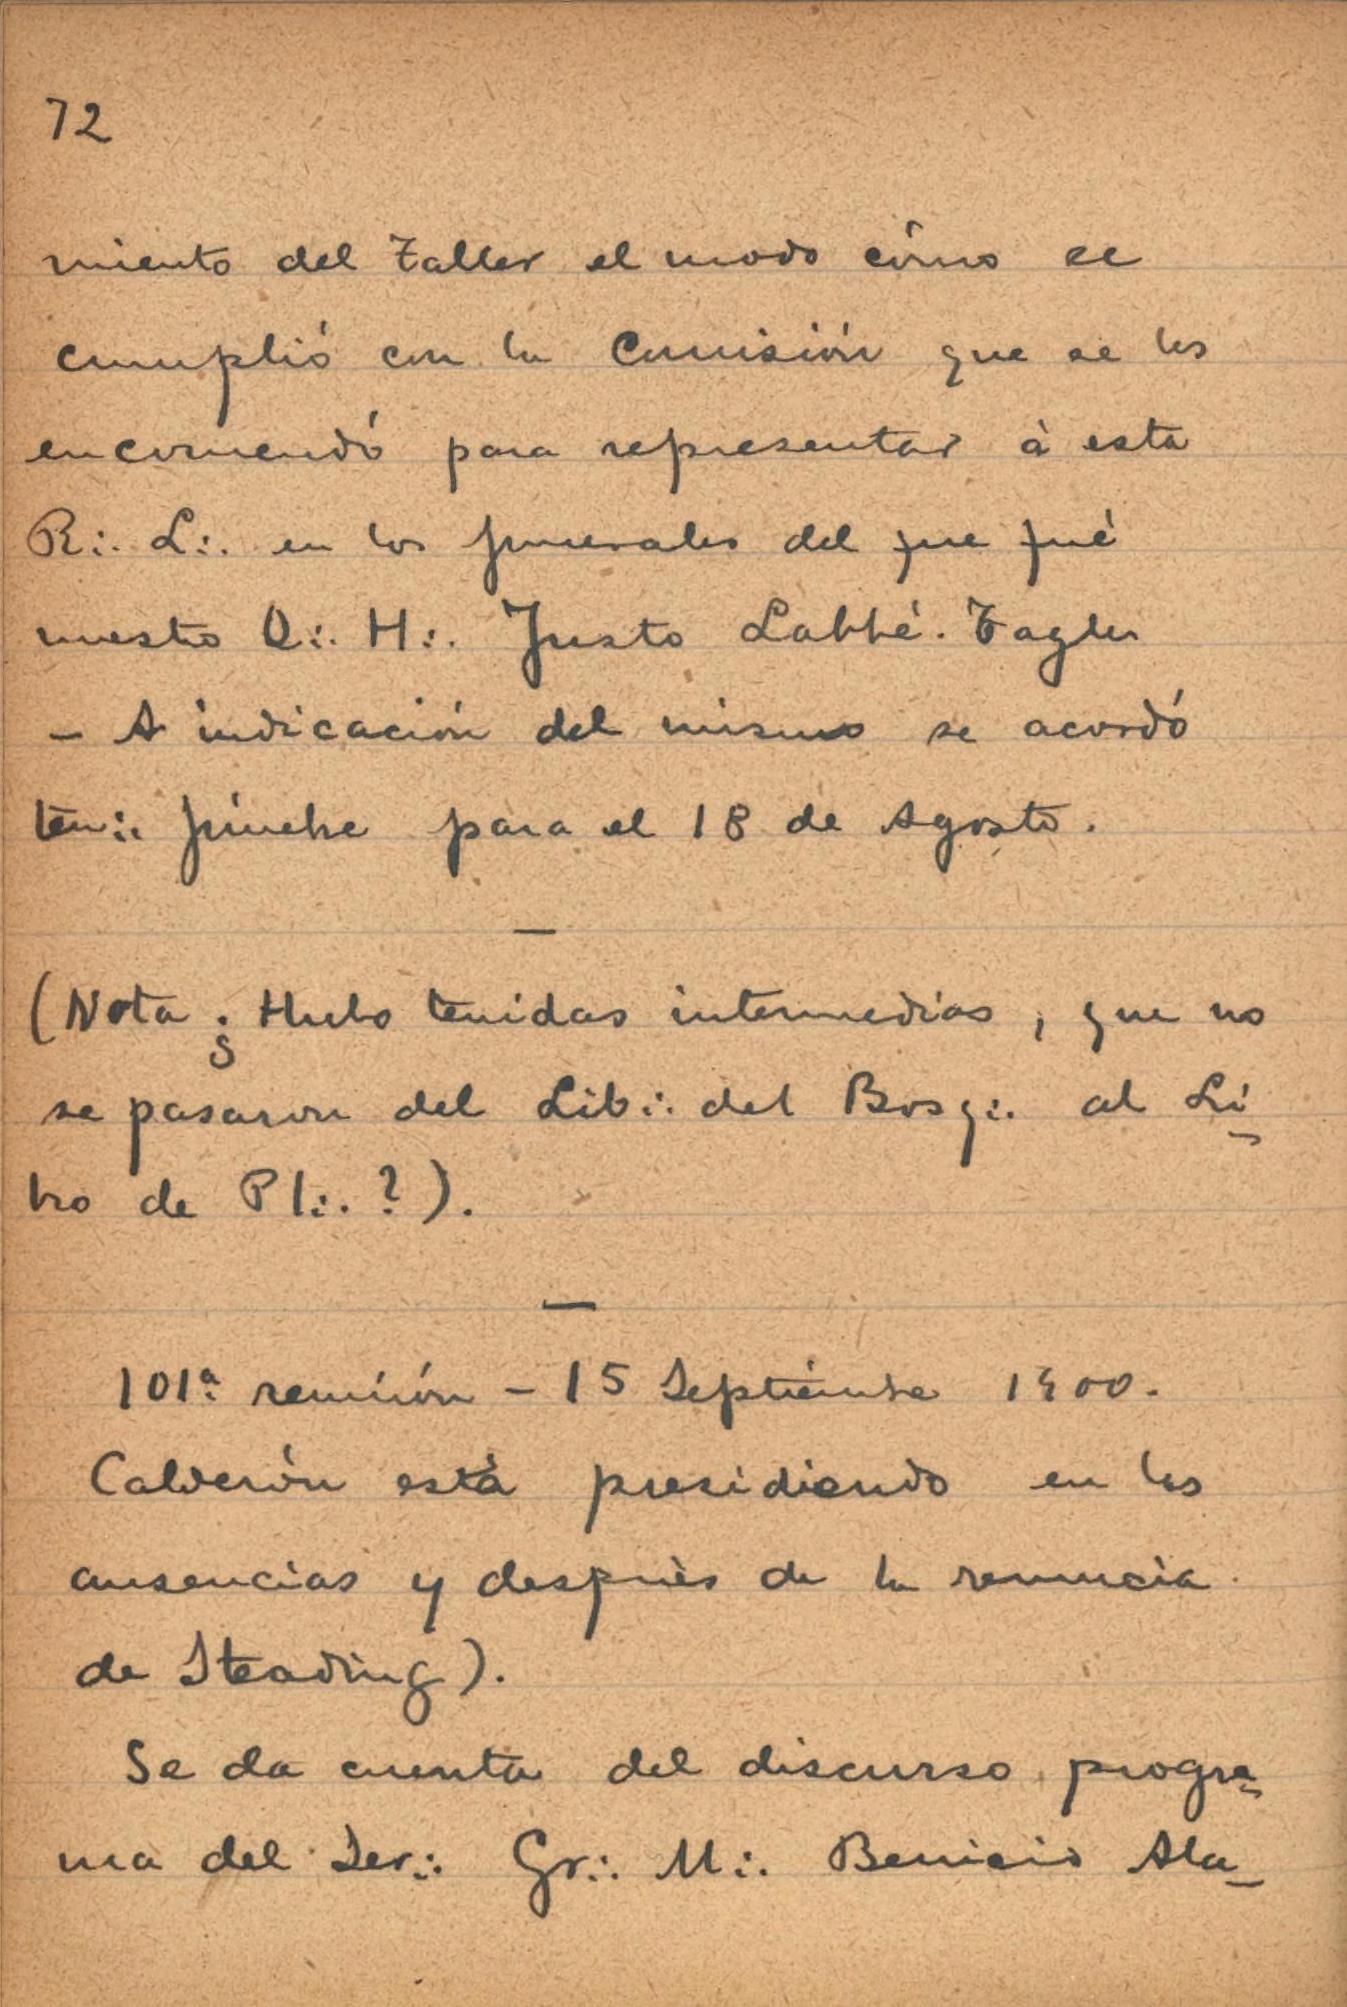 72
miento del Taller el modo cómo se
cumplió con la Comisión que se les
encomendó para representar à esta
R∴ L∴ en los funerales del que fué
nuestro Q∴ H∴ Justo Labbé. Tagle
– A indicación del mismo se acordó
ten∴ fúnebre para el 18 de Agosto.
—
(Nota ¿ Hubo tenidas intermedias, que no
se pasaron del Lib∴ del Bosq∴ al Li-
bro de Pl∴ ? ).
—
101ª reunión – 15 Septiembre 1900.
Calderón está presidiendo en las
ausencias y después de la renuncia
de Steading).
Se da cuenta del discurso progra-
ma del Ser∴ Gr∴ M∴ Benicio Ala-